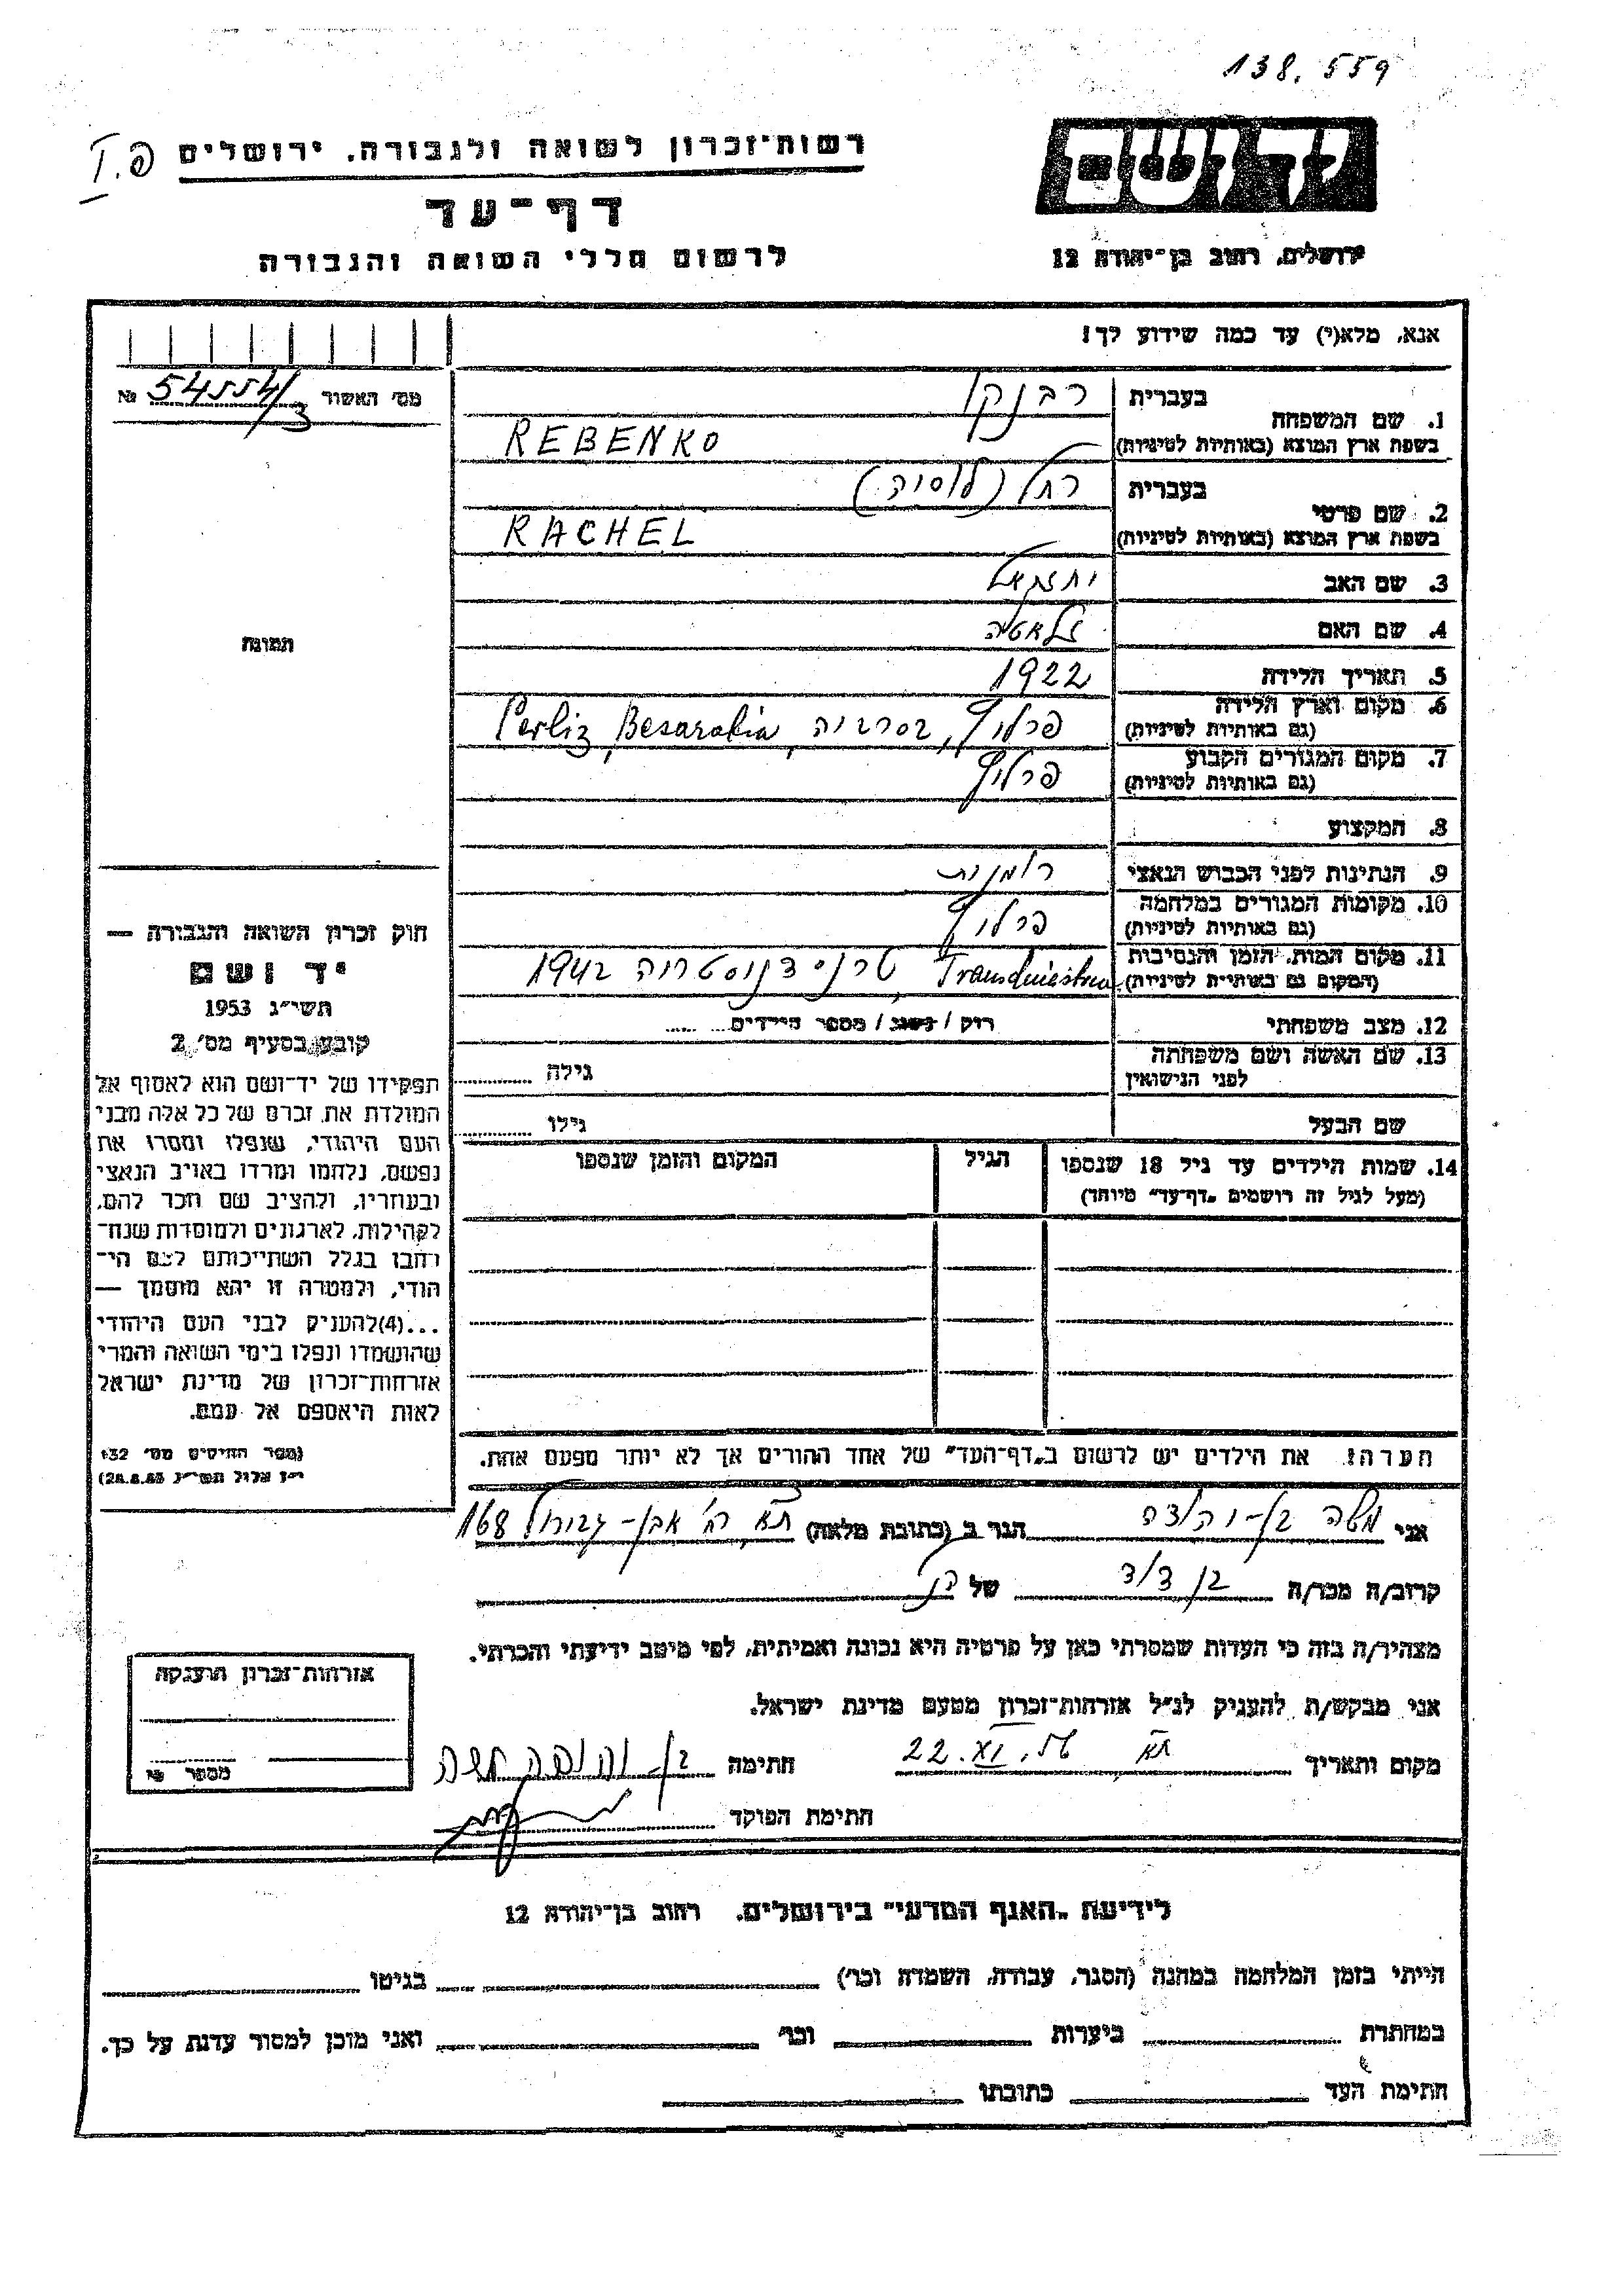 138.559
רשות־זכרון לשואה ולגבורה, ירושלים
דף־עד
לרשום חללי השואה והגבורה
יד ושם
ירושלים, רחוב בן־יהודה 12
אנא, מלא(י) עד כמה שידוע לך!
מס׳ האשור 54554/3 №
1. שם המשפחה
בעברית רבנקו
בשפת ארץ המוצא (באותיות לטיניות) REBENKO
2. שם פרטי
בעברית רחל
בשפת ארץ המוצא (באותיות לטיניות) RACHEL
3. שם האב יחזקאל
4. שם האם זלאטה
5. תאריך הלידה 1922
6. מקום וארץ הלידה
(גם באותיות לטיניות) פרליץ, בסרביה, Perliz, Besarabia
7. מקום המגורים הקבוע
(גם באותיות לטיניות) פרליץ
8. המקצוע
9. הנתינות לפני הכבוש הנאצי רומנית
10. מקומות המגורים במלחמה
(גם באותיות לטיניות) פרליץ
11. מקום המות, הזמן והנסיבות
(המקום גם באותיות לטיניות) Transdniestria, טרנסדניסטריה 1942
12. מצב משפחתי רווק / נשוי / מספר הילדים
13. שם האשה ושם משפחתה
לפני הנישואין גילה
שם הבעל גילו
14. שמות הילדים עד גיל 18 שנספו הגיל המקום והזמן שנספו
(מעל לגיל זה רושמים „דף־עד״ מיוחד)
הערה: את הילדים יש לרשום ב„דף־העד״ של אחד ההורים אך לא יותר מפעם אחת.
תמונה
חוק זכרון השואה והגבורה —
יד ושם
תשי״ג 1953
קובע בסעיף מס׳ 2
תפקידו של יד־ושם הוא לאסוף אל
המולדת את זכרם של כל אלה מבני
העם היהודי, שנפלו ומסרו את
נפשם, נלחמו ומרדו באויב הנאצי
ובעוזריו, ולהציב שם וזכר להם,
לקהילות, לארגונים ולמוסדות שנח־
רבו בגלל השתייכותם לעם הי־
הודי, ולמטרה זו יהא מוסמך —
...(4)להעניק לבני העם היהודי
שהושמדו ונפלו בימי השואה והמרי
אזרחות־זכרון של מדינת ישראל
לאות היאספם אל עמם.
(ספר החוקים מס׳ 132
י״ז אלול תשי״ג 28.8.53)
אני משה בן־ הגר ב (כתובת מלאה) ת״א רח׳ אבן־גבירול 168
קרוב/ה מכר/ה בן דוד של
מצהיר/ה בזה כי העדות שמסרתי כאן על פרטיה היא נכונה ואמיתית, לפי מיטב ידיעתי והכרתי.
אני מבקש/ת להעניק לנ״ל אזרחות־זכרון מטעם מדינת ישראל.
מקום ותאריך ת״א 22.XI.56 חתימה
חתימת הפוקד
אזרחות־זכרון הוענקה
מספר
לידיעת „האגף המדעי״ בירושלים, רחוב בן־יהודה 12
הייתי בזמן המלחמה במחנה (הסגר, עבודה, השמדה וכו׳) בגיטו
במחתרת ביערות וכו׳ ואני מוכן למסור עדות על כך.
חתימת העד כתובתו